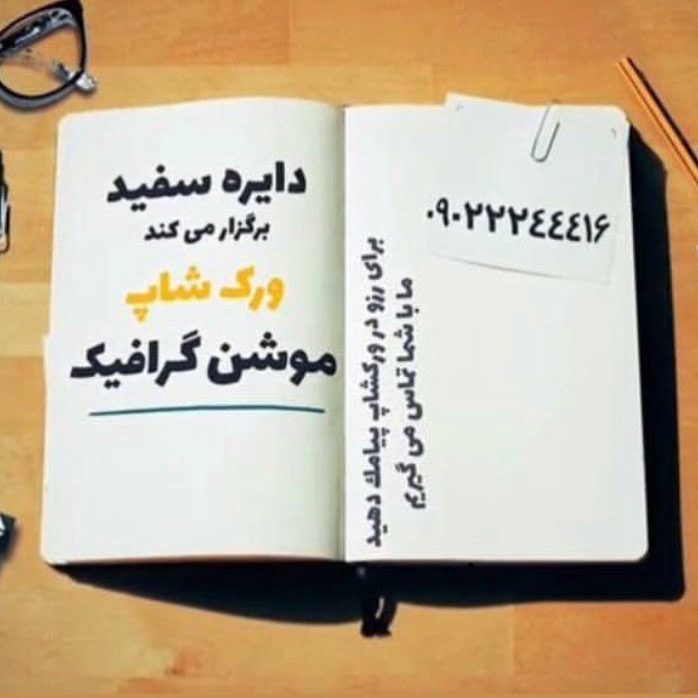 دایره سفید
برگزار می کند
ورک شاپ
موشن گرافیک
۰۹۰۲۲۲٤٤٤۱۶
برای رزو در ورکشاپ پیامک دهید
ما با شما تماس می گیریم